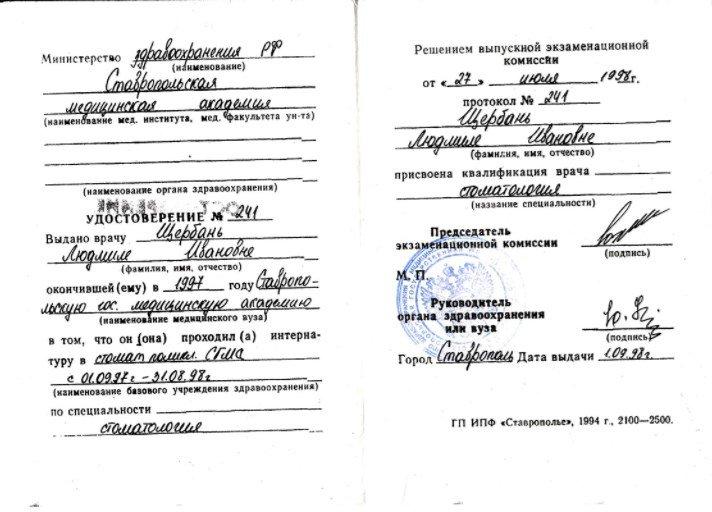 Министерство здравоохранения РФ
(наименование)
Ставропольская
медицинская академия
(наименование мед. института, мед. факультета ун-та)
(наименование органа здравоохранения)
УДОСТОВЕРЕНИЕ № 241
Выдано врачу Щербань
Людмиле Ивановне
(фамилия, имя, отчество)
окончившей(ему) в 1997 году Ставропо-
льскую гос. медицинскую академию
(наименование медицинского вуза)
в том, что он (она) проходил (а) интерна-
туру в стомат. поликл. СГМА
с 01.09.97г – 31.08.98г
(наименование базового учреждения здравоохранения)
по специальности
стоматология
Решением выпускной экзаменационной
комиссии
от «27» июля 1998г.
протокол № 241
Щербань
Людмиле Ивановне
(фамилия, имя, отчество)
присвоена квалификация врача
стоматология
(название специальности)
Председатель
экзаменационной комиссии
(подпись)
М. П.
Руководитель
органа здравоохранения
или вуза
(подпись)
Город Ставрополь Дата выдачи 1.09.98г.
ГП ИПФ «Ставрополье», 1994 г., 2100—2500.